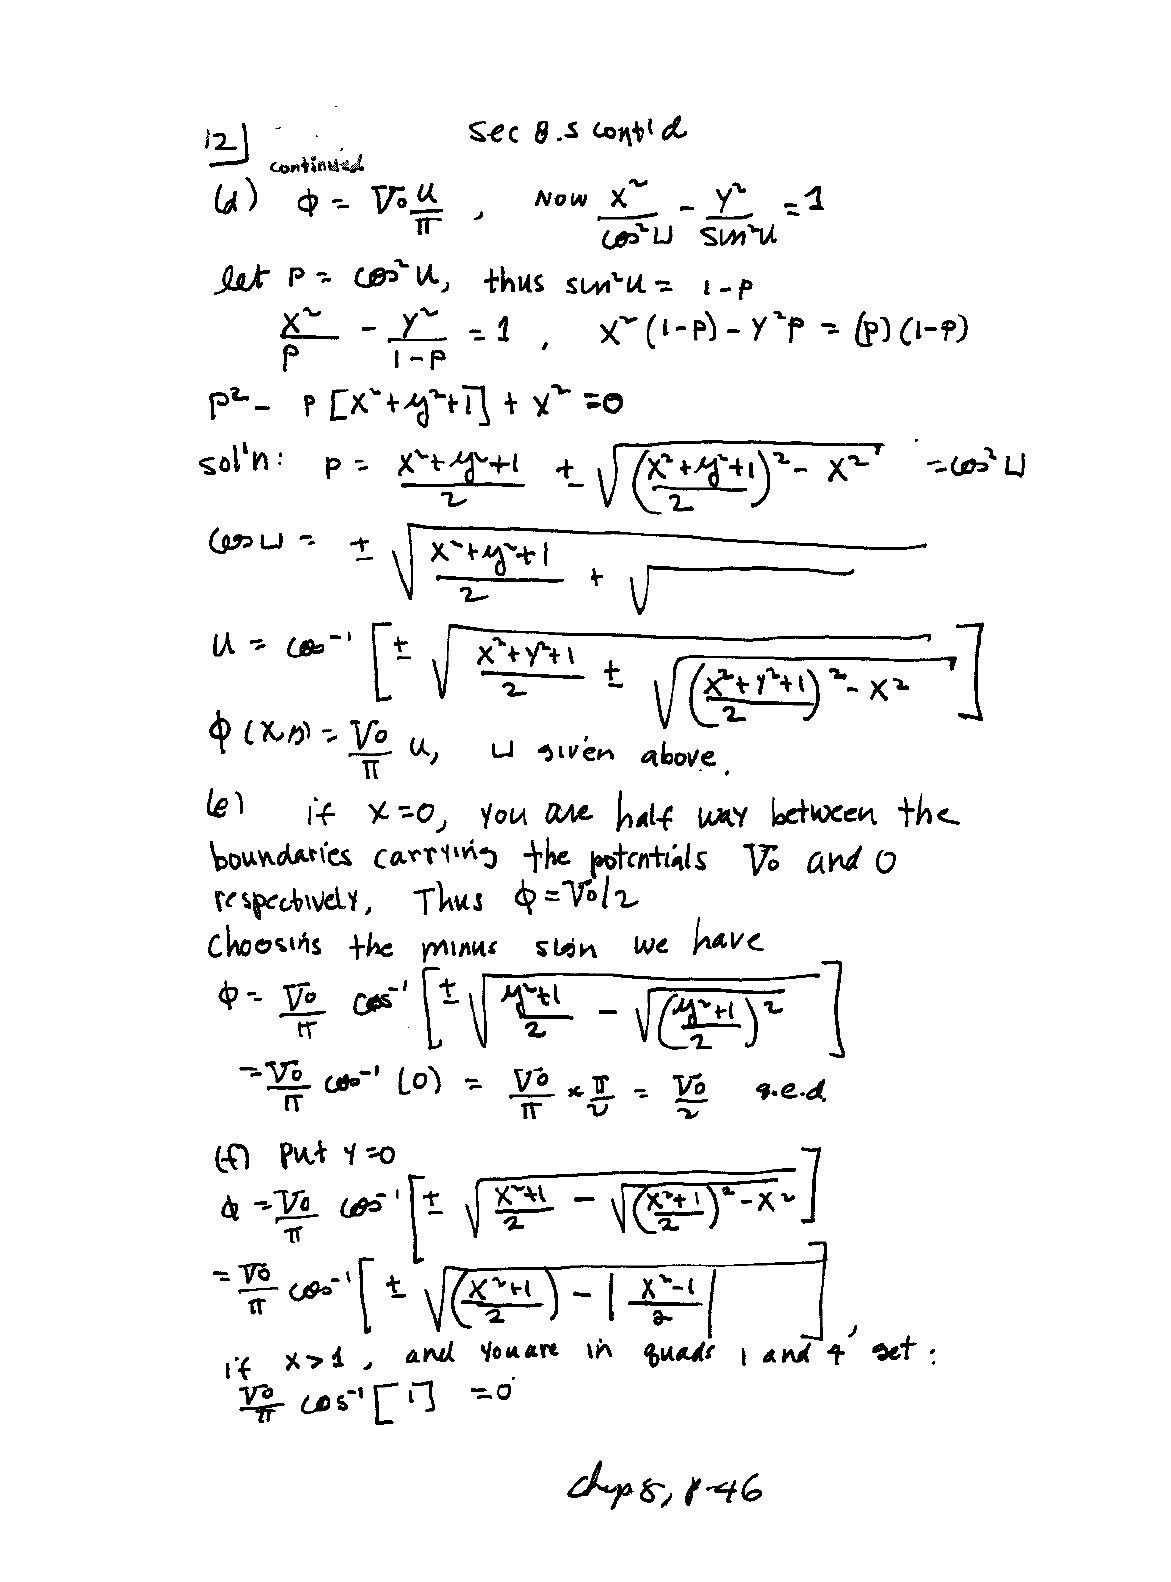 Sec 8.5 cont'd
12] continued
(d) ϕ = V₀ u/π , Now x²/cos²u - y²/sin²u = 1
let p = cos²u, thus sin²u = 1-p
x²/p - y²/(1-p) = 1 , x²(1-p) - y²p = (p)(1-p)
p² - p[x²+y²+1] + x² = 0
sol'n: p = (x²+y²+1)/2 ± √(((x²+y²+1)/2)² - x²) = cos²u
cos u = ± √((x²+y²+1)/2 + √ )
u = cos⁻¹[± √((x²+y²+1)/2 ± √(((x²+y²+1)/2)² - x²))]
ϕ(x,y) = V₀/π u, u given above.
(e) if x=0, you are half way between the
boundaries carrying the potentials V₀ and 0
respectively, Thus ϕ = V₀/2
Choosing the minus sign we have
ϕ = V₀/π cos⁻¹[± √((y²+1)/2 - √(((y²+1)/2)²))]
= V₀/π cos⁻¹(0) = V₀/π × π/2 = V₀/2 q.e.d.
(f) Put y=0
ϕ = V₀/π cos⁻¹[± √((x²+1)/2 - √(((x²+1)/2)² - x²))]
= V₀/π cos⁻¹[± √(((x²+1)/2) - |(x²-1)/2|)]
if x>1, and you are in quads 1 and 4, get:
V₀/π cos⁻¹[1] = 0
chap 8, p-46